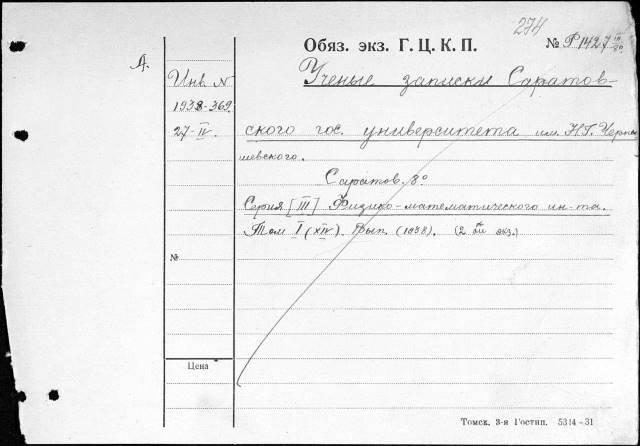 274
Обяз. экз. Г. Ц. К. П.
№ Р1427 III/20
А.
Инв N
1938-369.
27-IV.
Ученые записки Саратов-
ского гос. университета им. Н.Г. Черны-
шевского.
Саратов. 8°
Серия [III] Физико-математического ин-та.
Том I (XIV). Вып. (1938). (2 экз.)
№
Цена
Томск, 3-я Гостип. 5314-31